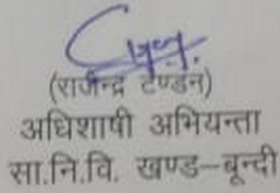 (राजेन्द्र टण्डन)
अधिशाषी अभियन्ता
सा.नि.वि. खण्ड–बून्दी